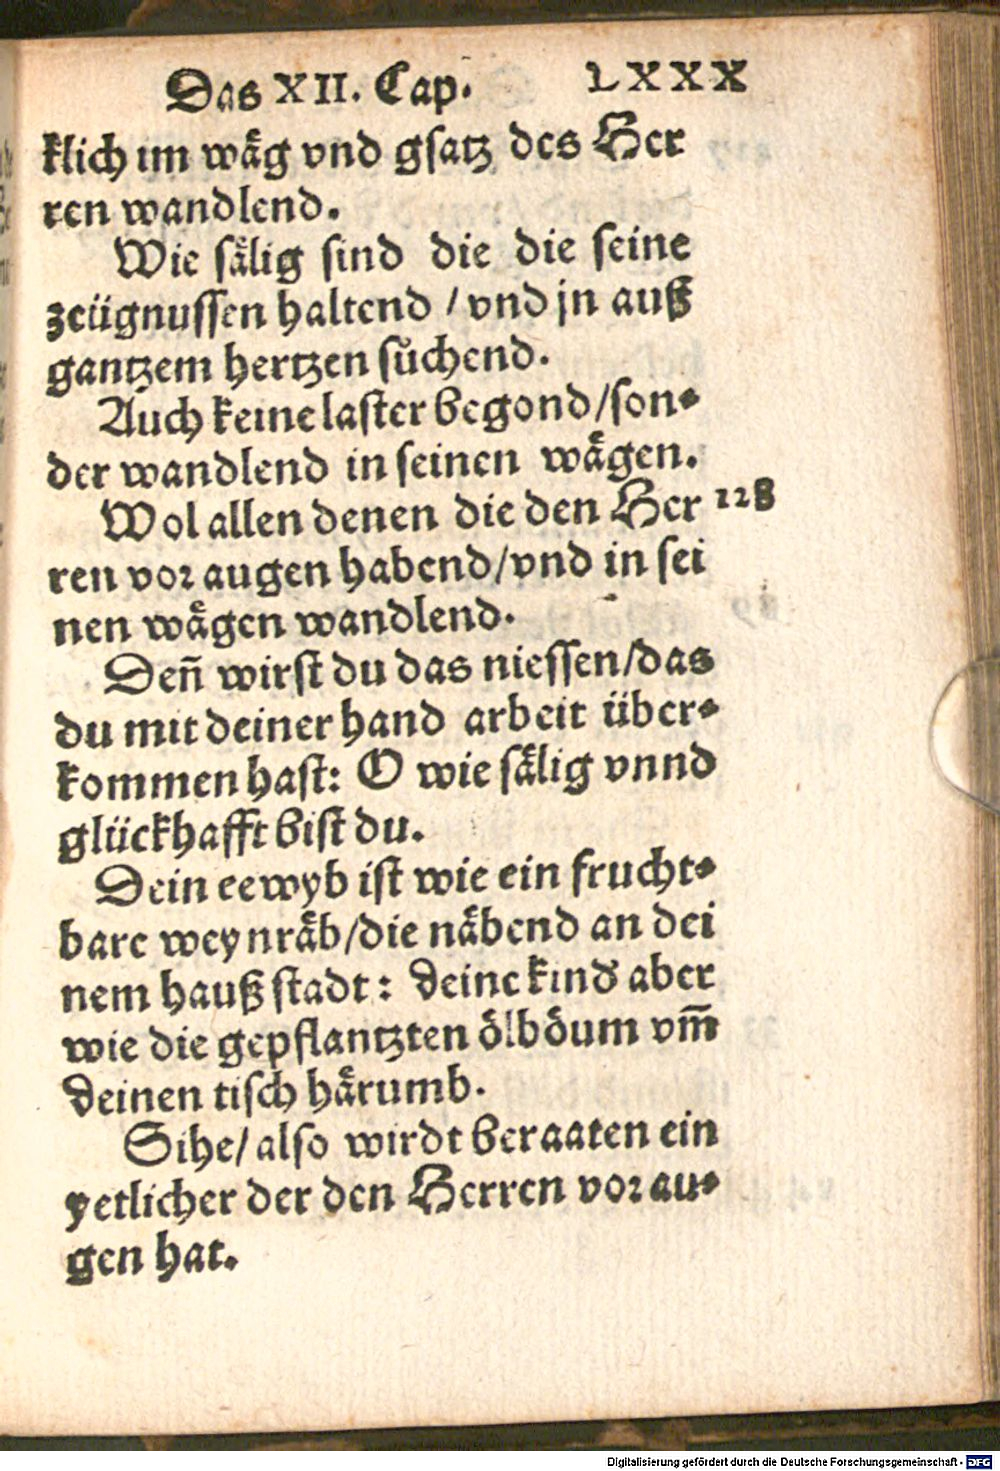 Das XII. Cap. LXXX
klich im wåg vnd gsatz des Her
ren wandlend.
Wie sålig sind die die seine
zeügnussen haltend / vnd jn auß
gantzem hertzen sůchend.
Auch keine laster begond/son⸗
der wandlend in seinen wågen.
Wol allen denen die den Her 128
ren vor augen habend/vnd in sei
nen wågen wandlend.
Deñ wirst du das niessen/das
du mit deiner hand arbeit über⸗
kommen hast: O wie sålig vnnd
glückhafft bist du.
Dein eewyb ist wie ein frucht⸗
bare weynråb/die nåbend an dei
nem hauß stadt: deine kind aber
wie die gepflantzten ölböum vm̃
deinen tisch hårumb.
Sihe/also wirdt beraaten ein
yetlicher der den Herren vor au⸗
gen hat.
Digitalisierung gefördert durch die Deutsche Forschungsgemeinschaft - DFG